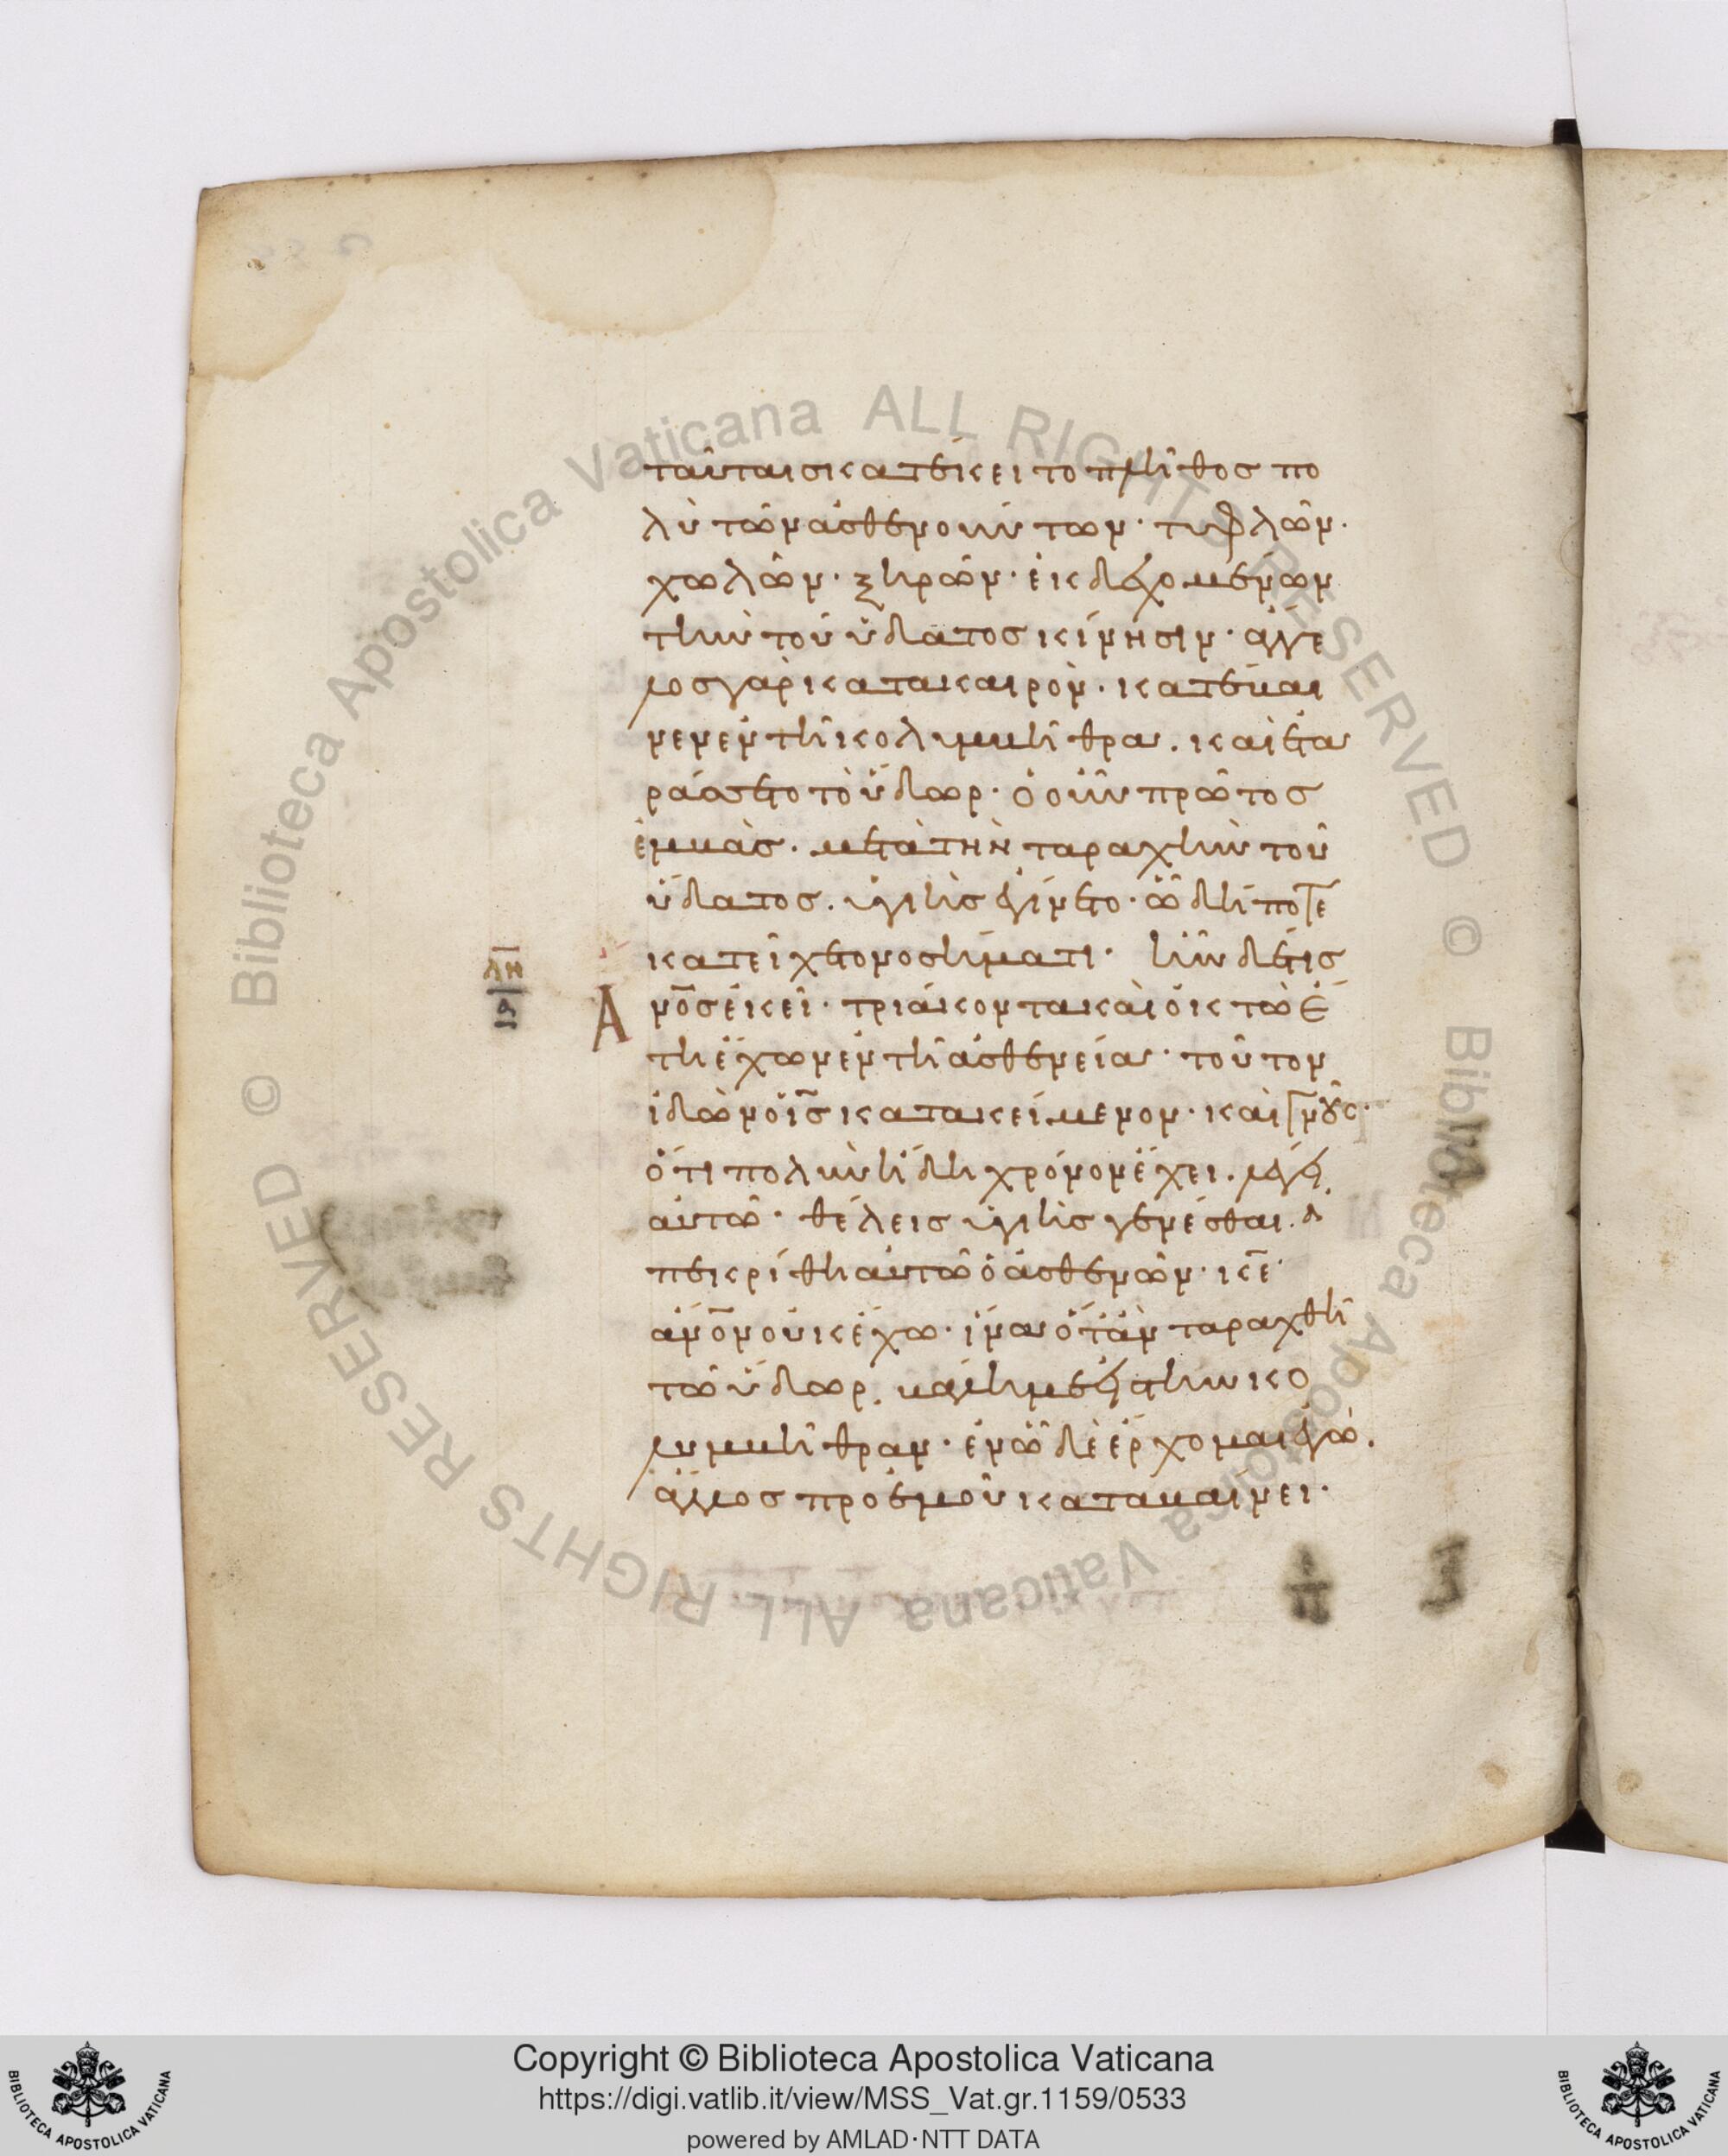 ταύταις κατέκειτο πλῆθος πο
λὺ τῶν ἀσθενούντων· τυφλῶν·
χωλῶν· ξηρῶν· ἐκδεχομένων
τὴν τοῦ ὕδατος κίνησιν· ἄγγε
λος γὰρ κατὰ καιρὸν· κατέβαι
νεν ἐν τῆ κολυμβήθρα. καὶ ἐτα
ράσσετο τὸ ὕδωρ· ὁ οὖν πρῶτος
ἐμβὰς. μετὰ τὴν ταραχὴν τοῦ
ὕδατος. ὑγιὴς ἐγίνετο· ὧ δήποτε
κατείχετο νοσήματι· ἦν δέ τις
ΛΗ
Α
ανοσ ἐκεῖ· τριάκοντα καὶ ὀκτὼ ἔ
τη ἔχων ἐν τῆ ἀσθενεία· τοῦτον
ἰδὼν ὁ ισ κατακείμενον· καὶ γνοὺς·
ὅτι πολὺν ἤδη χρόνον ἔχει. λέγει
αὐτῶ· θέλεις ὑγιὴς γενέσθαι. ἀ
πεκρίθη αὐτῶ ὁ ἀσθενῶν· κε·
ανον οὐκ ἔχω· ἵνα ὅταν ταραχθῆ
τῶ ὕδωρ. βάλη με εἰς τὴν κο
λυμβήθραν· ἐν ὧ δὲ ἔρχομαι ἐγὼ.
ἄλλος πρὸ ἐμοῦ καταβαίνει·
Copyright © Biblioteca Apostolica Vaticana
https://digi.vatlib.it/view/MSS_Vat.gr.1159/0533
powered by AMLAD·NTT DATA
BIBLIOTECA APOSTOLICA VATICANA
BIBLIOTECA APOSTOLICA VATICANA
© Biblioteca Apostolica Vaticana ALL RIGHTS RESERVED
© Biblioteca Apostolica Vaticana ALL RIGHTS RESERVED